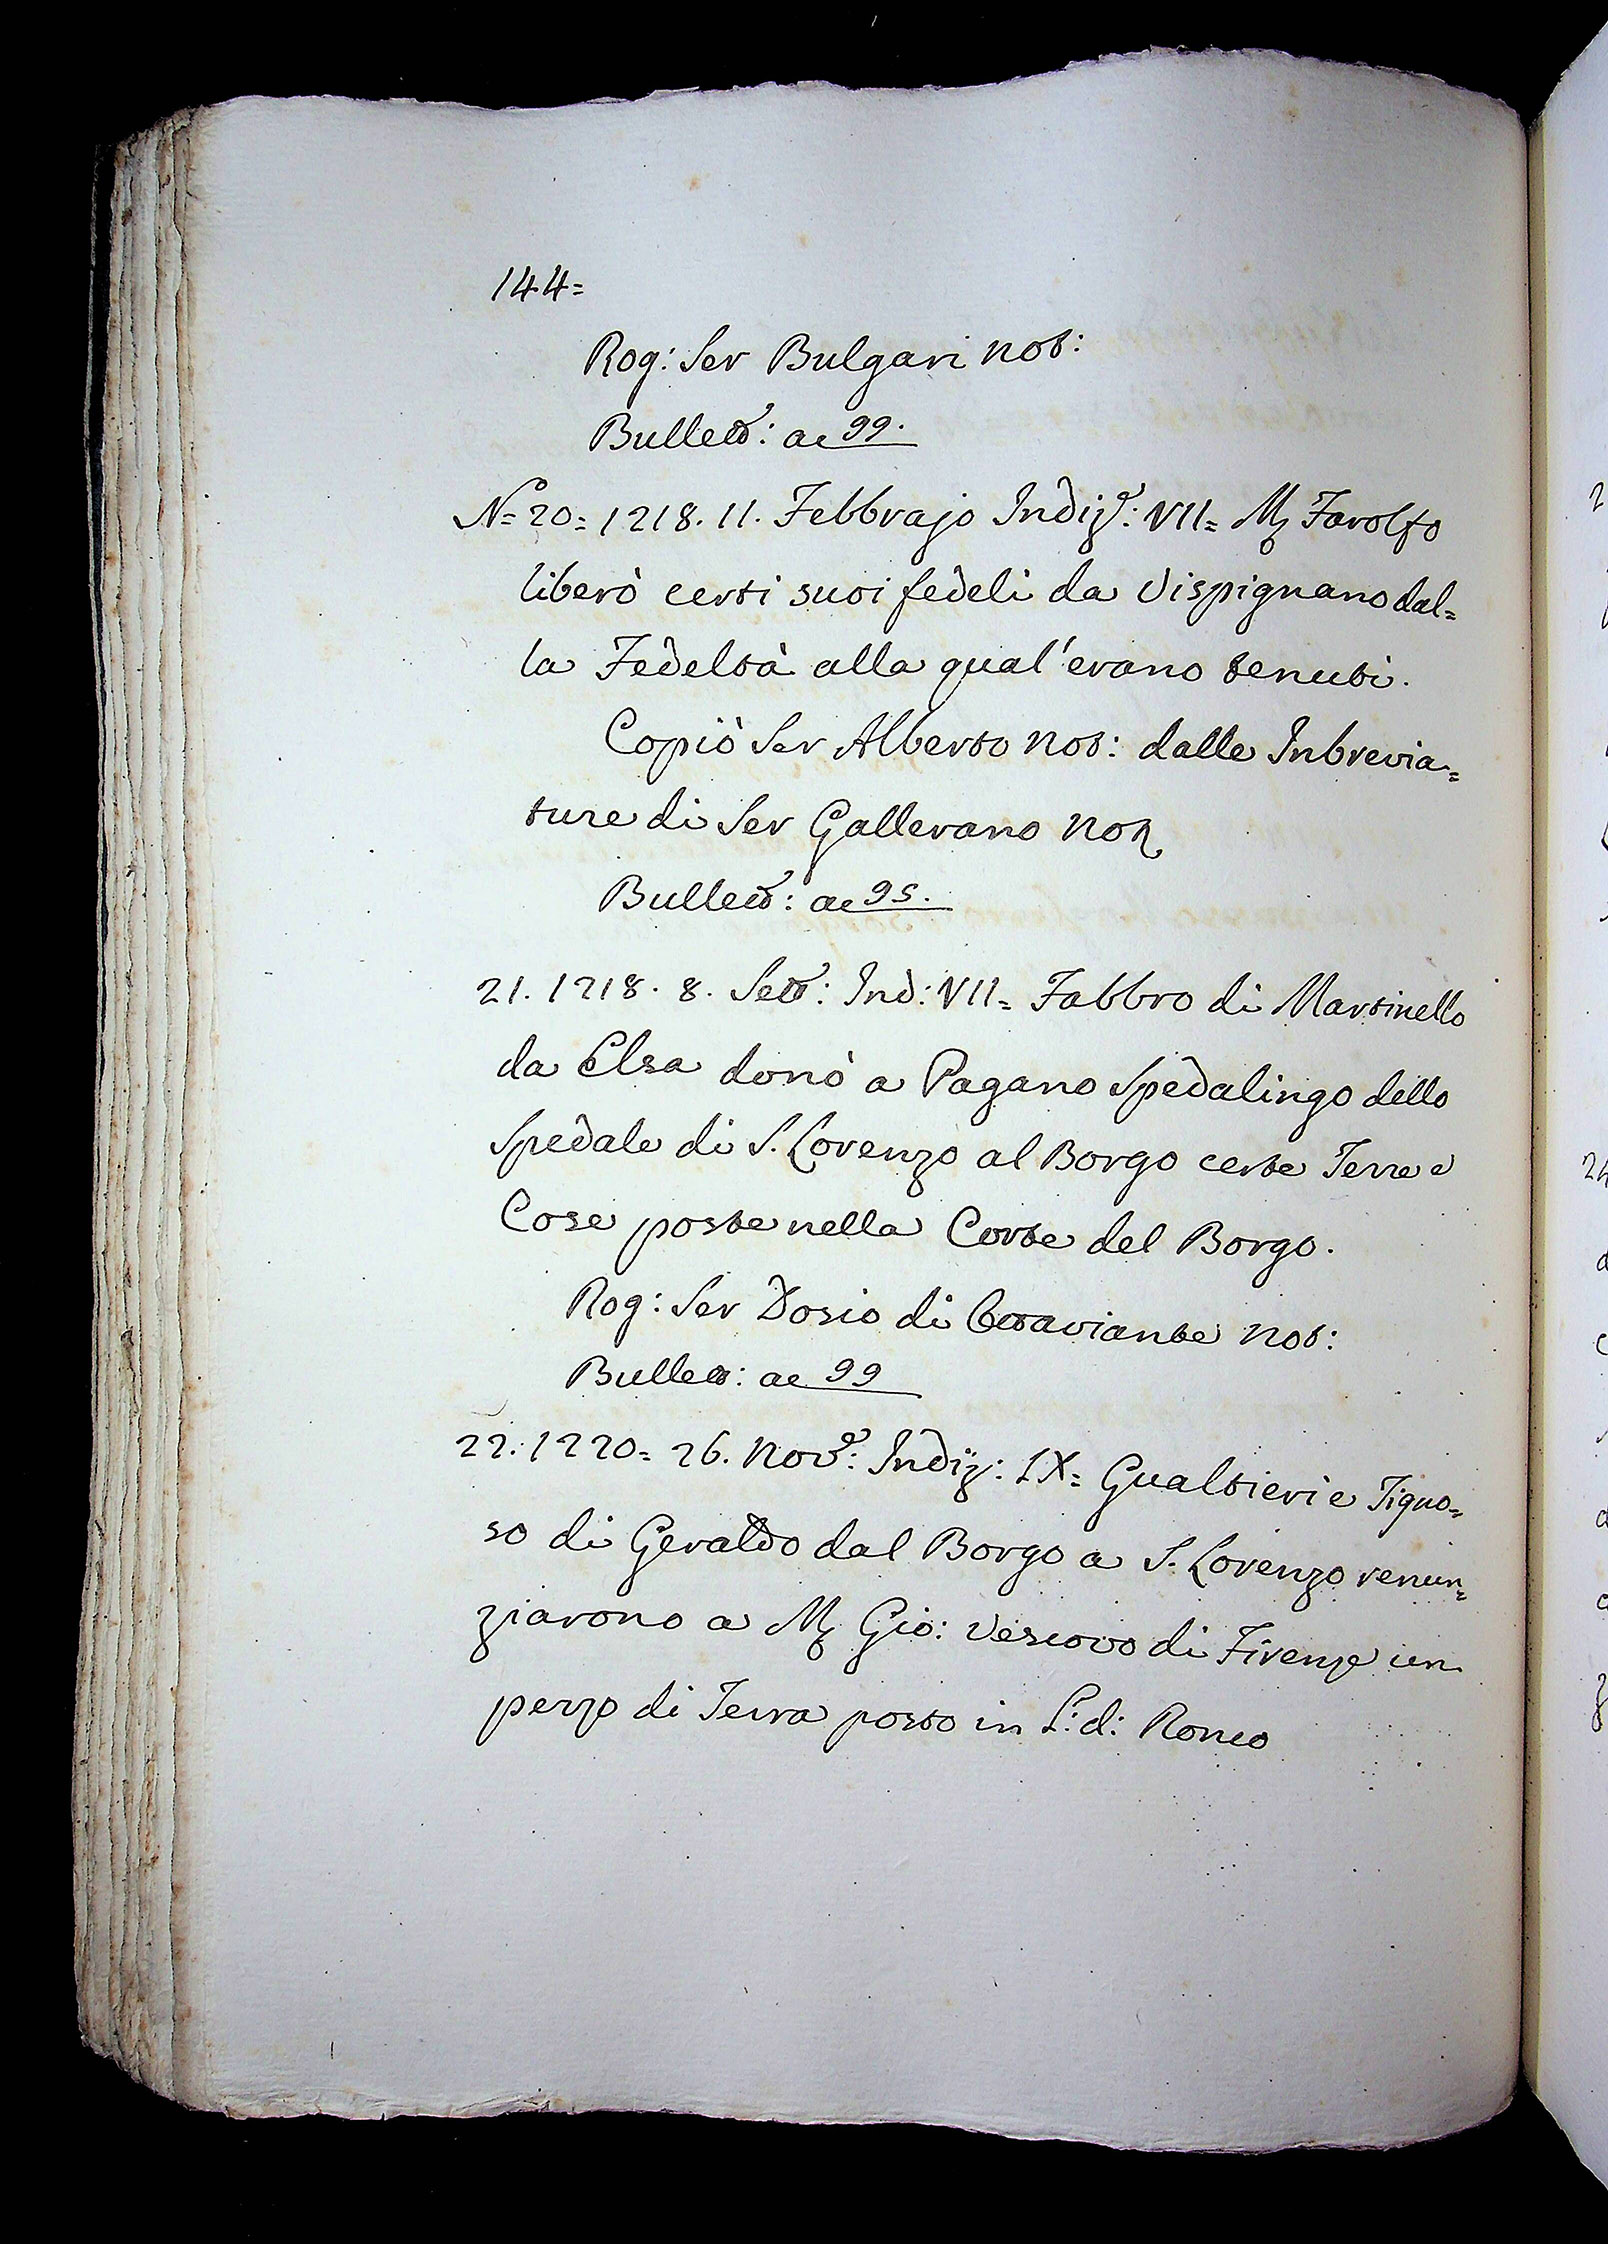 144=
Rog: Ser Bulgari not:
Bullett: a c 99.
N= 20= 1218. 11. Febbrajo Indiz.e: VII= M Farolfo
liberò certi suoi fedeli da Vispignano dal=
la Fedeltà alla qual'erano tenuti.
Copiò Ser Alberto not: dalle Inbrevia=
ture di Ser Gallerano not
Bullett: a c 95.
21. 1218. 8. Sett: Ind: VII= Fabbro di Martinello
da Elsa donò a Pagano Spedalingo dello
Spedale di S. Lorenzo al Borgo certe Terre e
Cose poste nella Corte del Borgo.
Rog: Ser Dosio di Ottaviante not:
Bullett: a c 99
22. 1220= 26. Nov.e: Indiz: IX= Gualtieri e Tigno=
so di Geraldo dal Borgo a S. Lorenzo renun=
ziarono a M Gio: Vescovo di Firenze un
pezzo di Terra posto in L: d: Ronco